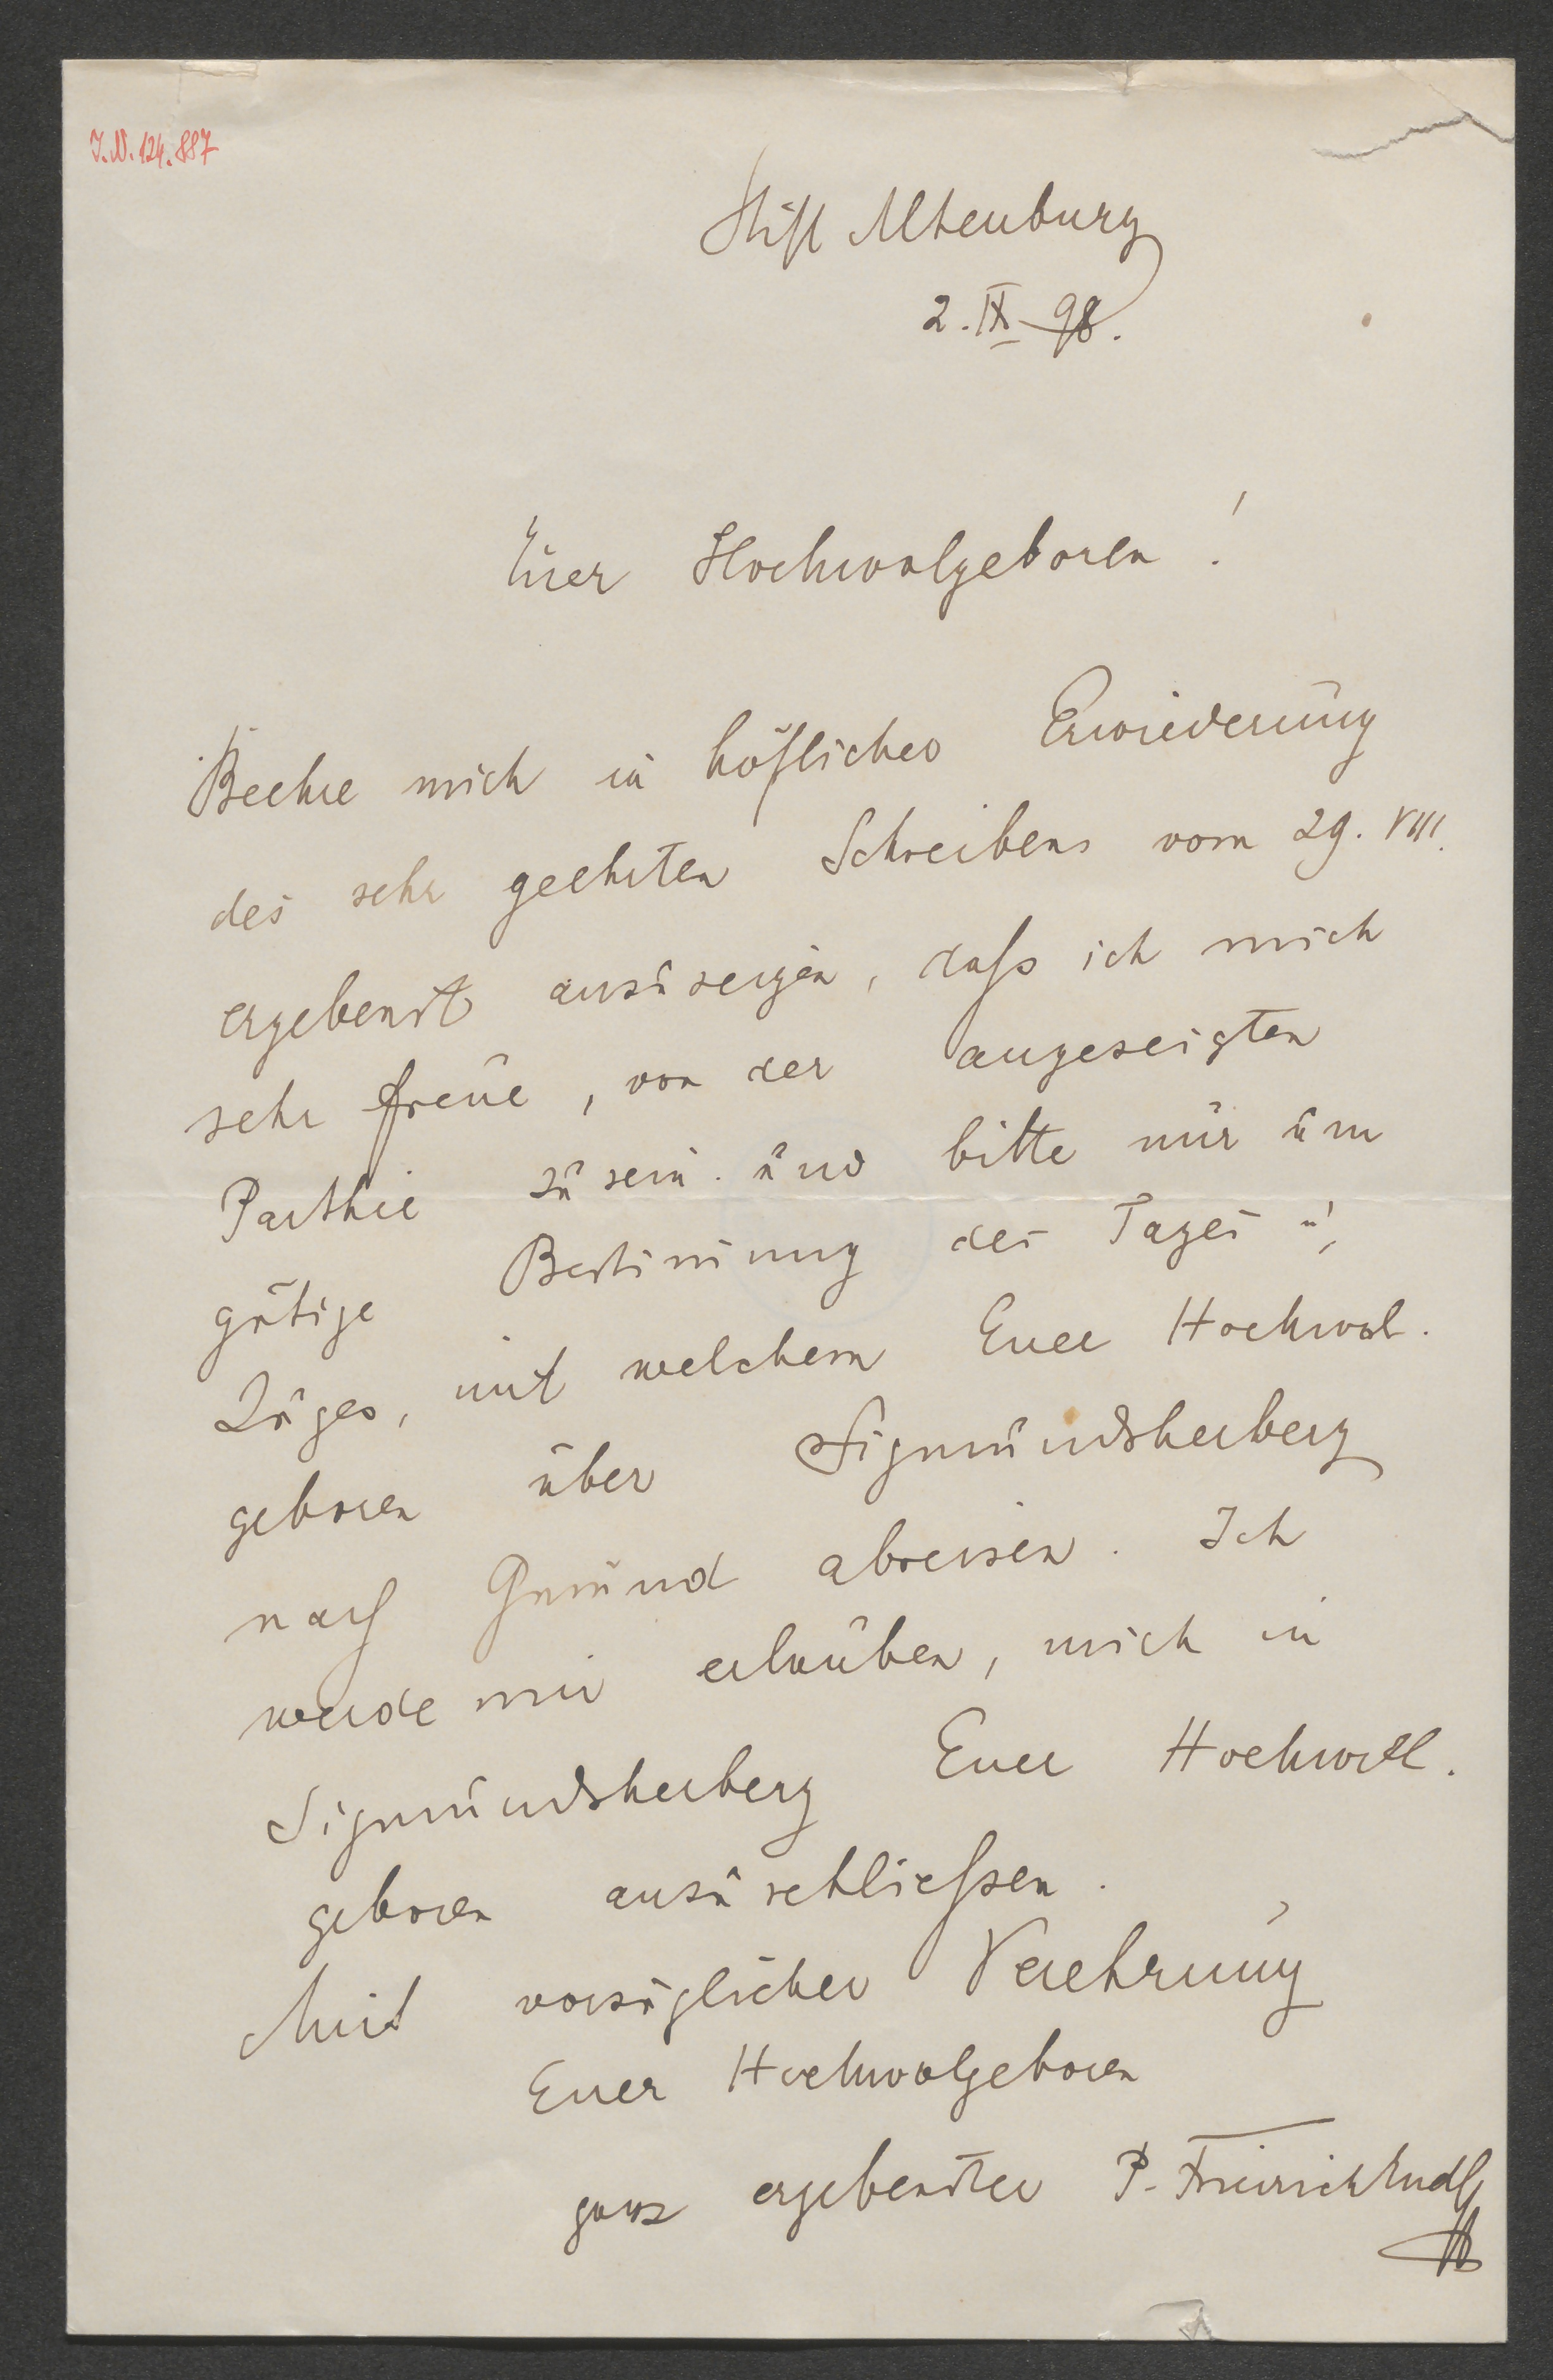 J.N. 124.887
Stift Altenburg
2. IX 98.
Euer Hochwolgeboren!
Beehre mich in höflicher Erwiederung
des sehr geehrten Schreibens vom 29. VIII.
ergebenst anzuzeigen, daſs ich mich
sehr freue, von der angezeigten
Parthie zu sein und bitte nur um
gütige Bestimmung des Tages u.
Zuges, mit welchem Euer Hochwol.
geboren über Sigmundsherberg
nach Gmünd abreisen. Ich
werde mir erlauben, mich in
Sigmundsherberg Euer Hochwol.
geboren anzuschlieſsen.
Mit vorzüglicher Verehrung
Euer Hochwolgeboren
ganz ergebenster P. Friedrich Endl